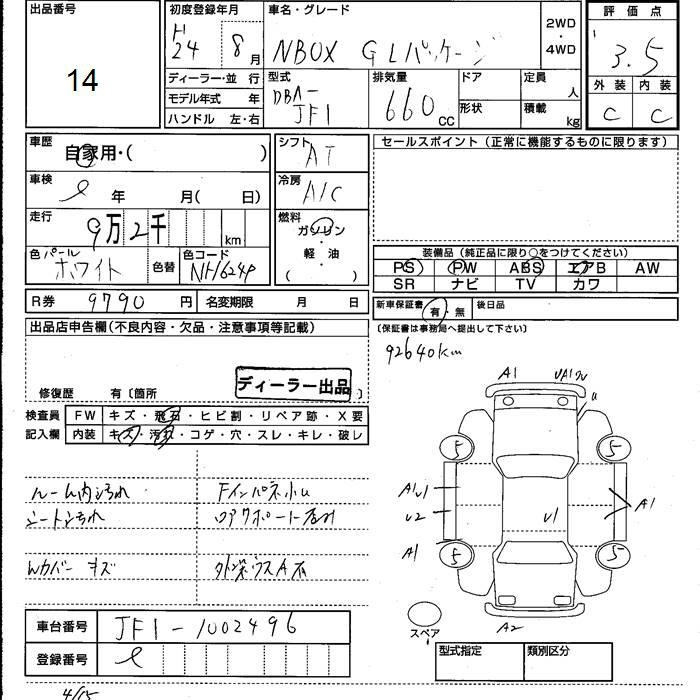 出品番号
14
初度登録年月
H 24 8 月
車名・グレード
NBOX GLパッケージ
2WD
・
4WD
評価点
3.5
外装 内装
C C
ディーラー・並行
モデル年式 年
ハンドル 左・右
型式
DBA-
JF1
排気量
660 CC
ドア
形状
定員 人
積載 kg
車歴
自家用・( )
車検
年 月( 日)
走行
9万2千 km
色 パール
ホワイト
色替
色コード
NH624P
シフト
AT
冷房
A/C
燃料
ガソリン
・
軽・油
( )
セールスポイント(正常に機能するものに限ります)
装備品(純正品に限り○をつけてください)
PS PW ABS エアB AW
SR ナビ TV カワ
R券 9790 円 名変期限 月 日
新車保証書 有・無 後日品
(保証書は事務局へ提出して下さい)
出品店申告欄(不良内容・欠品・注意事項等記載)
ディーラー出品
修復歴 有〔箇所 〕
92640km
検査員
記入欄
FW キズ・飛石・ヒビ割・リペア跡・X要
内装 キズ・汚れ・コゲ・穴・スレ・キレ・破レ
ルーム内汚れ
シート汚れ
Wカバー キズ
Fインパネ小U
A1
5 5
A1U1
U2
U1
A1
A1
5 5
A2
スペア
車台番号 JF1-1002496
登録番号
型式指定 類別区分
4/15